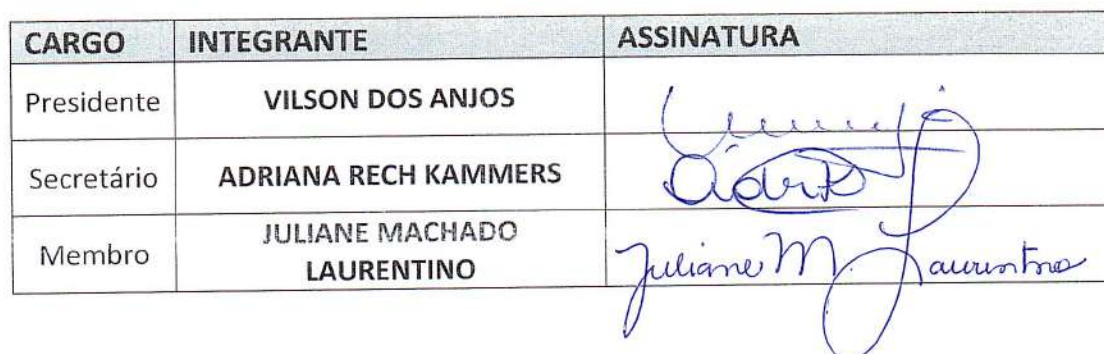 CARGO INTEGRANTE ASSINATURA
Presidente VILSON DOS ANJOS
Secretário ADRIANA RECH KAMMERS
Membro JULIANE MACHADO
LAURENTINO
Juliane M Laurentino